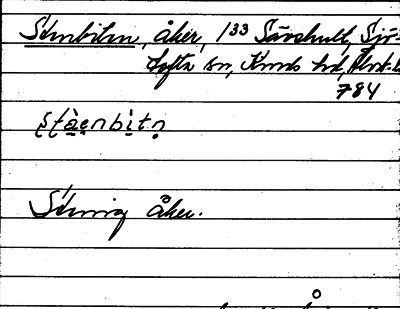 Stenbiten, åker, 1/33 Särshult, Sjö-
tofta sn, Kinds hd,
784
stàenbìtn
Stenig åker.